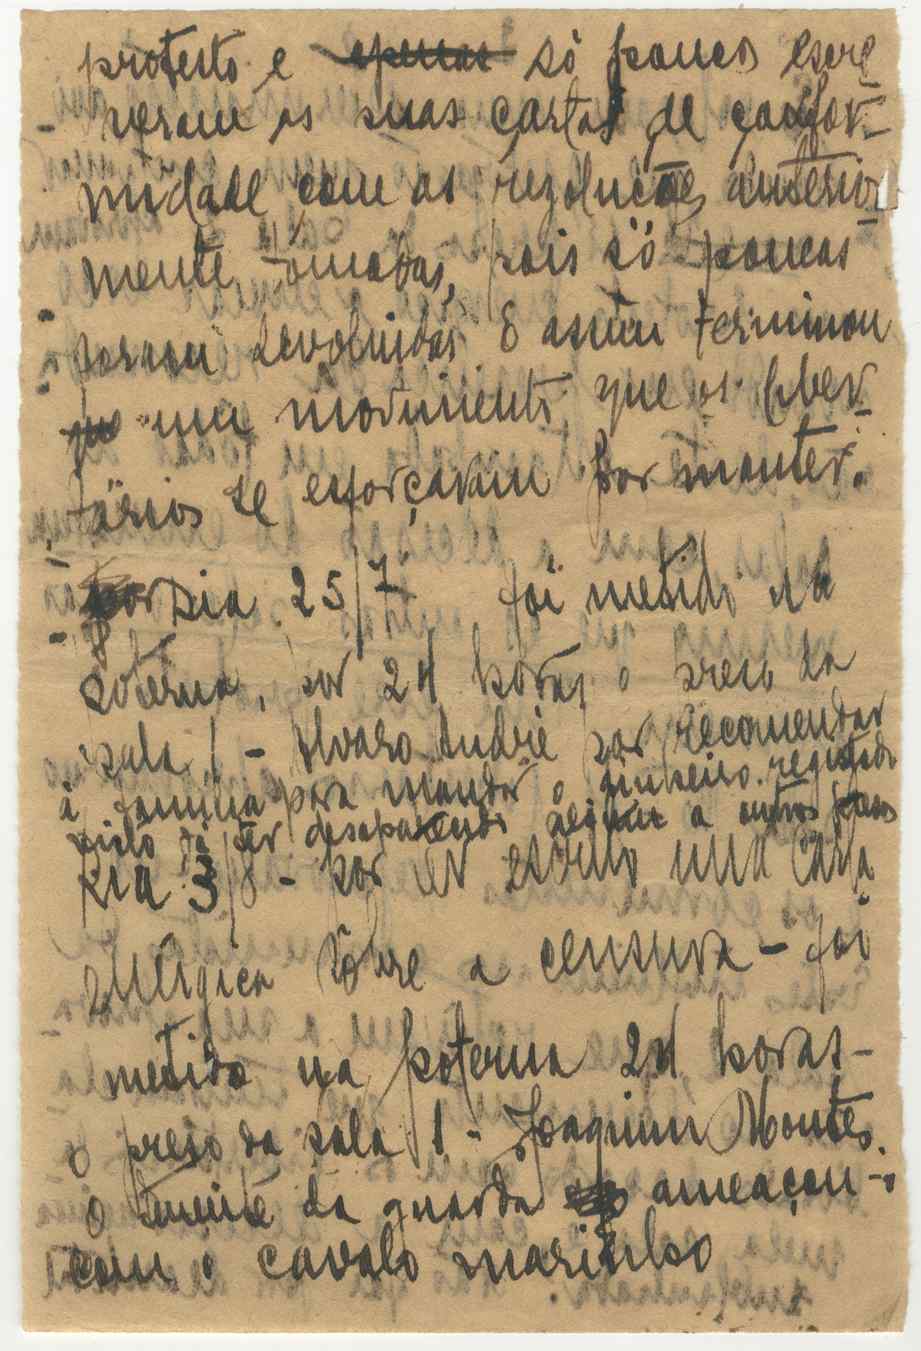 protesto e apenas só poucos escre
veram as suas cartas de confor-
midade com as rezoluções anterior
mente tomadas, pois só poucas
foram devolvidas E assim terminou
um movimento que os liber-
tários se esforçavam por manter.
Dia 25/7 foi metido na
poterna, por 24 horas, o preso da
sala 1 - Alvaro André por recomendar
á familia para mandar o dinheiro registado
visto já ter desaparecido algum a outros presos
Dia 3/8 - por ter escrito uma carta
enérgica sobre a censura - foi
metido na poterna 24 horas -
o preso da sala 1 - Joaquim Montes.
O tenente da guarda ameaçou-o
com o cavalo marinho